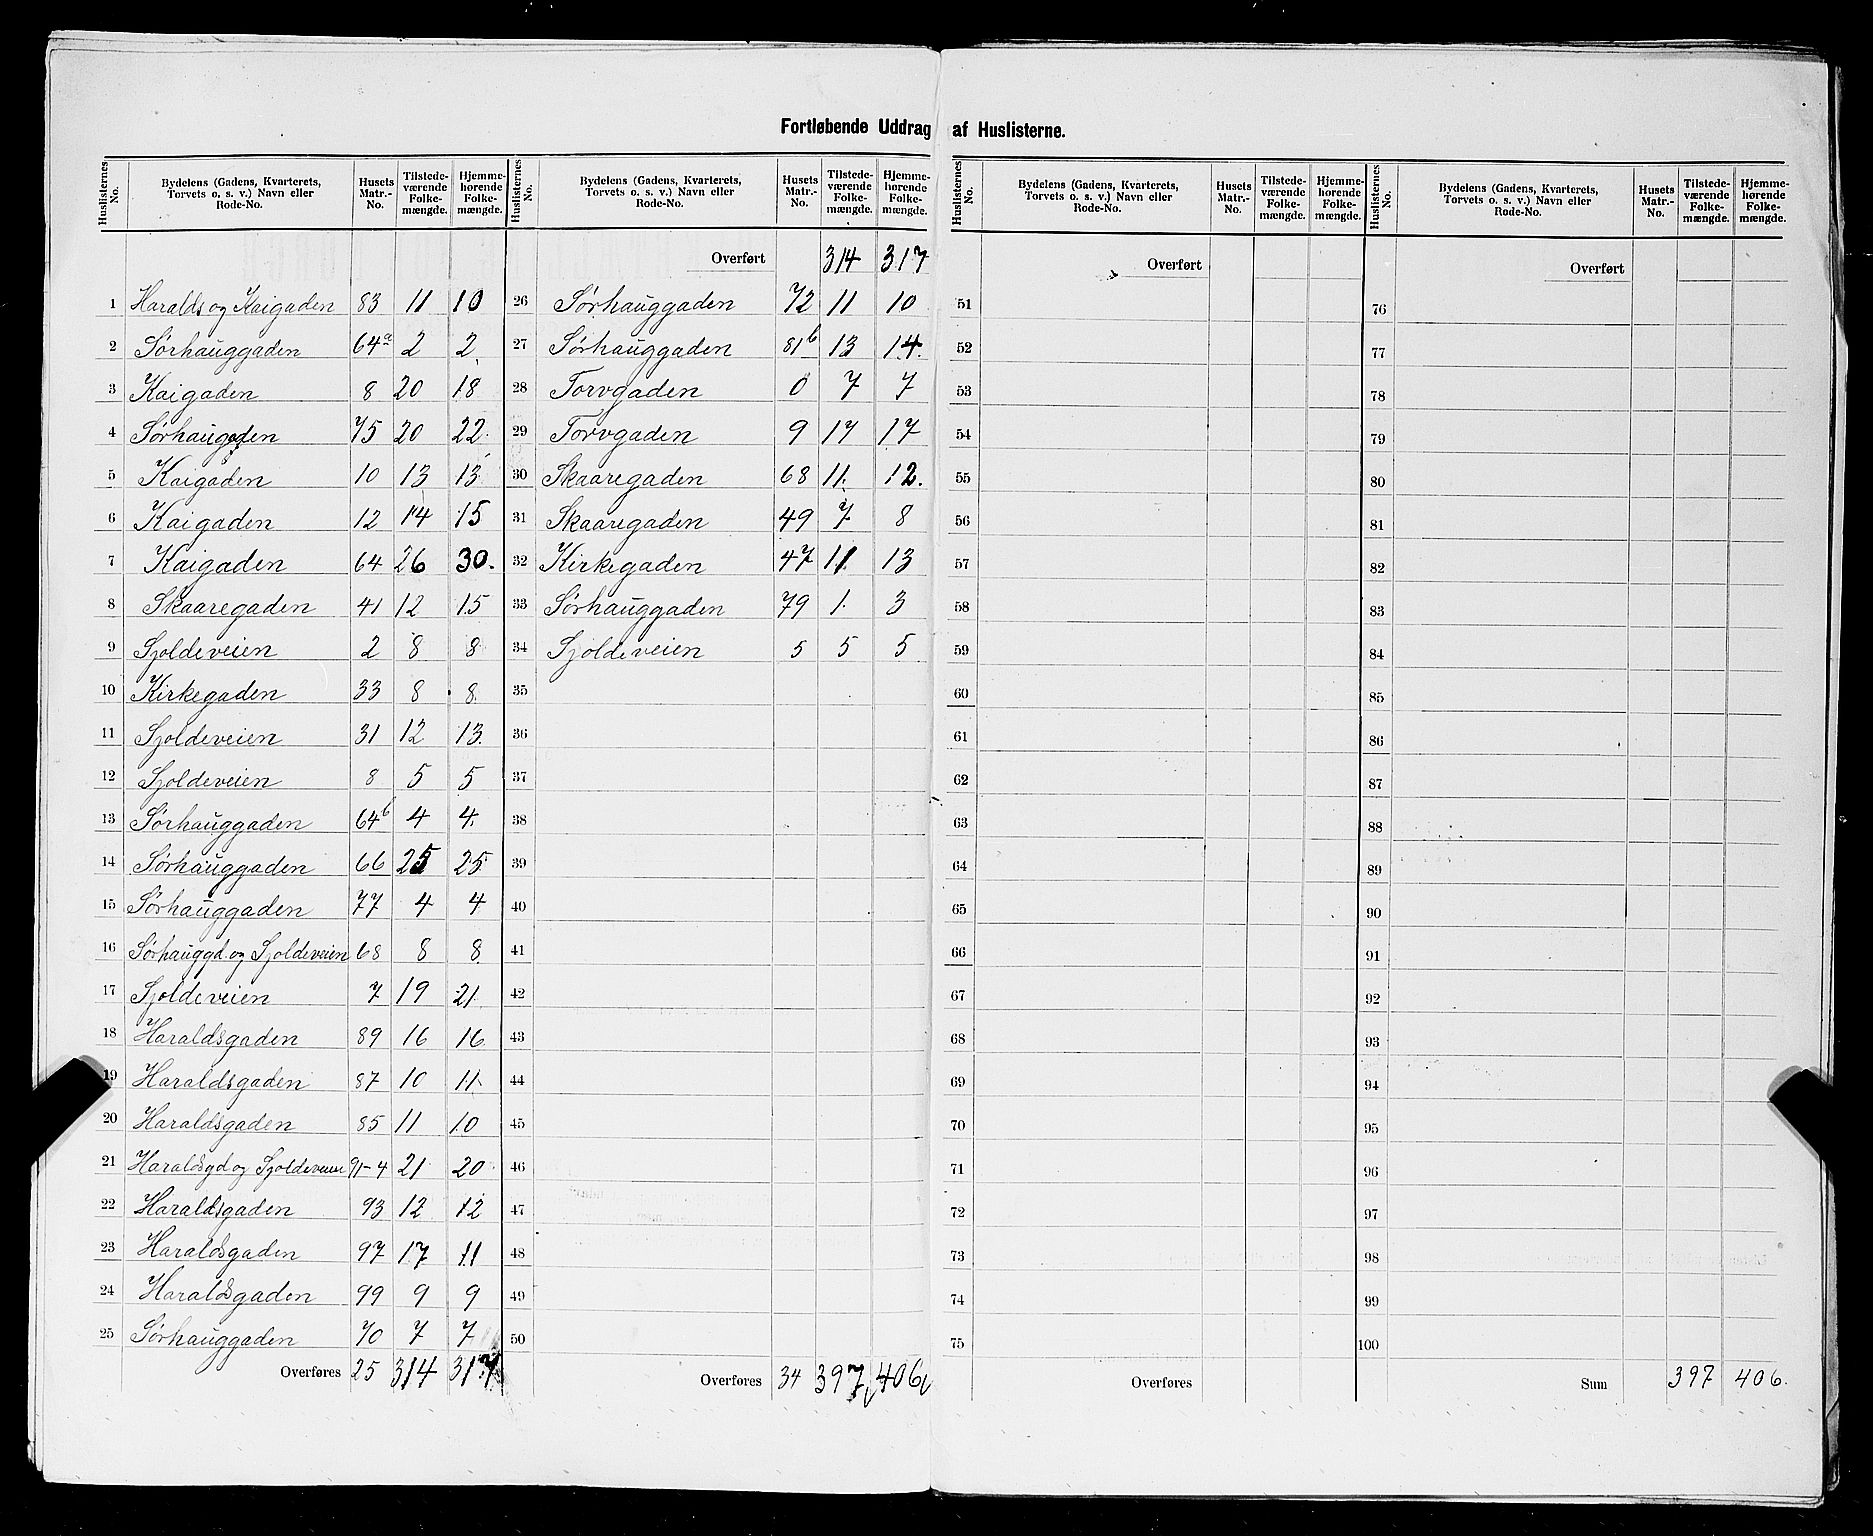 Fortløbende Uddrag af Huslisterne.
Huslisternes No. | Bydelens (Gadens, Kvarterets, Torvets o. s. v.) Navn eller Rode-No. | Husets Matr.-No. | Tilstedeværende Folkemængde. | Hjemmehørende Folkemængde.
1 Haralds og Kaigaden 83 11 10
2 Sørhauggaden 64a 2 2
3 Kaigaden 8 20 18
4 Sørhauggden 75 20 22
5 Kaigaden 10 13 13
6 Kaigaden 12 14 15
7 Kaigaden 64 26 30.
8 Skaaregaden 41 12 15
9 Sjoldeveien 2 8 8
10 Kirkegaden 33 8 8
11 Sjoldeveien 31 12 13
12 Sjoldeveien 8 5 5
13 Sørhauggaden 64b 4 4
14 Sørhauggaden 66 25 25
15 Sørhauggaden 77 4 4
16 Sørhauggd. og Sjoldeveien 68 8 8
17 Sjoldeveien 7 19 21
18 Haraldsgaden 89 16 16
19 Haraldsgaden 87 10 11
20 Haraldsgaden 85 11 10
21 Haraldsgd og Sjoldeveien 91-4 21 20
22 Haraldsgaden 93 12 12
23 Haraldsgaden 97 17 11
24 Haraldsgaden 99 9 9
25 Sørhauggaden 70 7 7
Overføres 25 314 317
Huslisternes No. | Bydelens (Gadens, Kvarterets, Torvets o. s. v.) Navn eller Rode-No. | Husets Matr.-No. | Tilstedeværende Folkemængde. | Hjemmehørende Folkemængde.
Overført 314 317
26 Sørhauggaden 72 11 10
27 Sørhauggaden 81b 13 14.
28 Torvgaden 0 7 7
29 Torvgaden 9 17 17
30 Skaaregaden 68 11 12.
31 Skaaregaden 49 7 8
32 Kirkegaden 47 11 13
33 Sørhauggaden 79 1 3
34 Sjoldeveien 5 5 5
35
36
37
38
39
40
41
42
43
44
45
46
47
48
49
50
Overføres 34 397 406
Huslisternes No. | Bydelens (Gadens, Kvarterets, Torvets o. s. v.) Navn eller Rode-No. | Husets Matr.-No. | Tilstedeværende Folkemængde. | Hjemmehørende Folkemængde.
Overført
51
52
53
54
55
56
57
58
59
60
61
62
63
64
65
66
67
68
69
70
71
72
73
74
75
Overføres
Huslisternes No. | Bydelens (Gadens, Kvarterets, Torvets o. s. v.) Navn eller Rode-No. | Husets Matr.-No. | Tilstedeværende Folkemængde. | Hjemmehørende Folkemængde.
Overført
76
77
78
79
80
81
82
83
84
85
86
87
88
89
90
91
92
93
94
95
96
97
98
99
100
Sum 397 406.